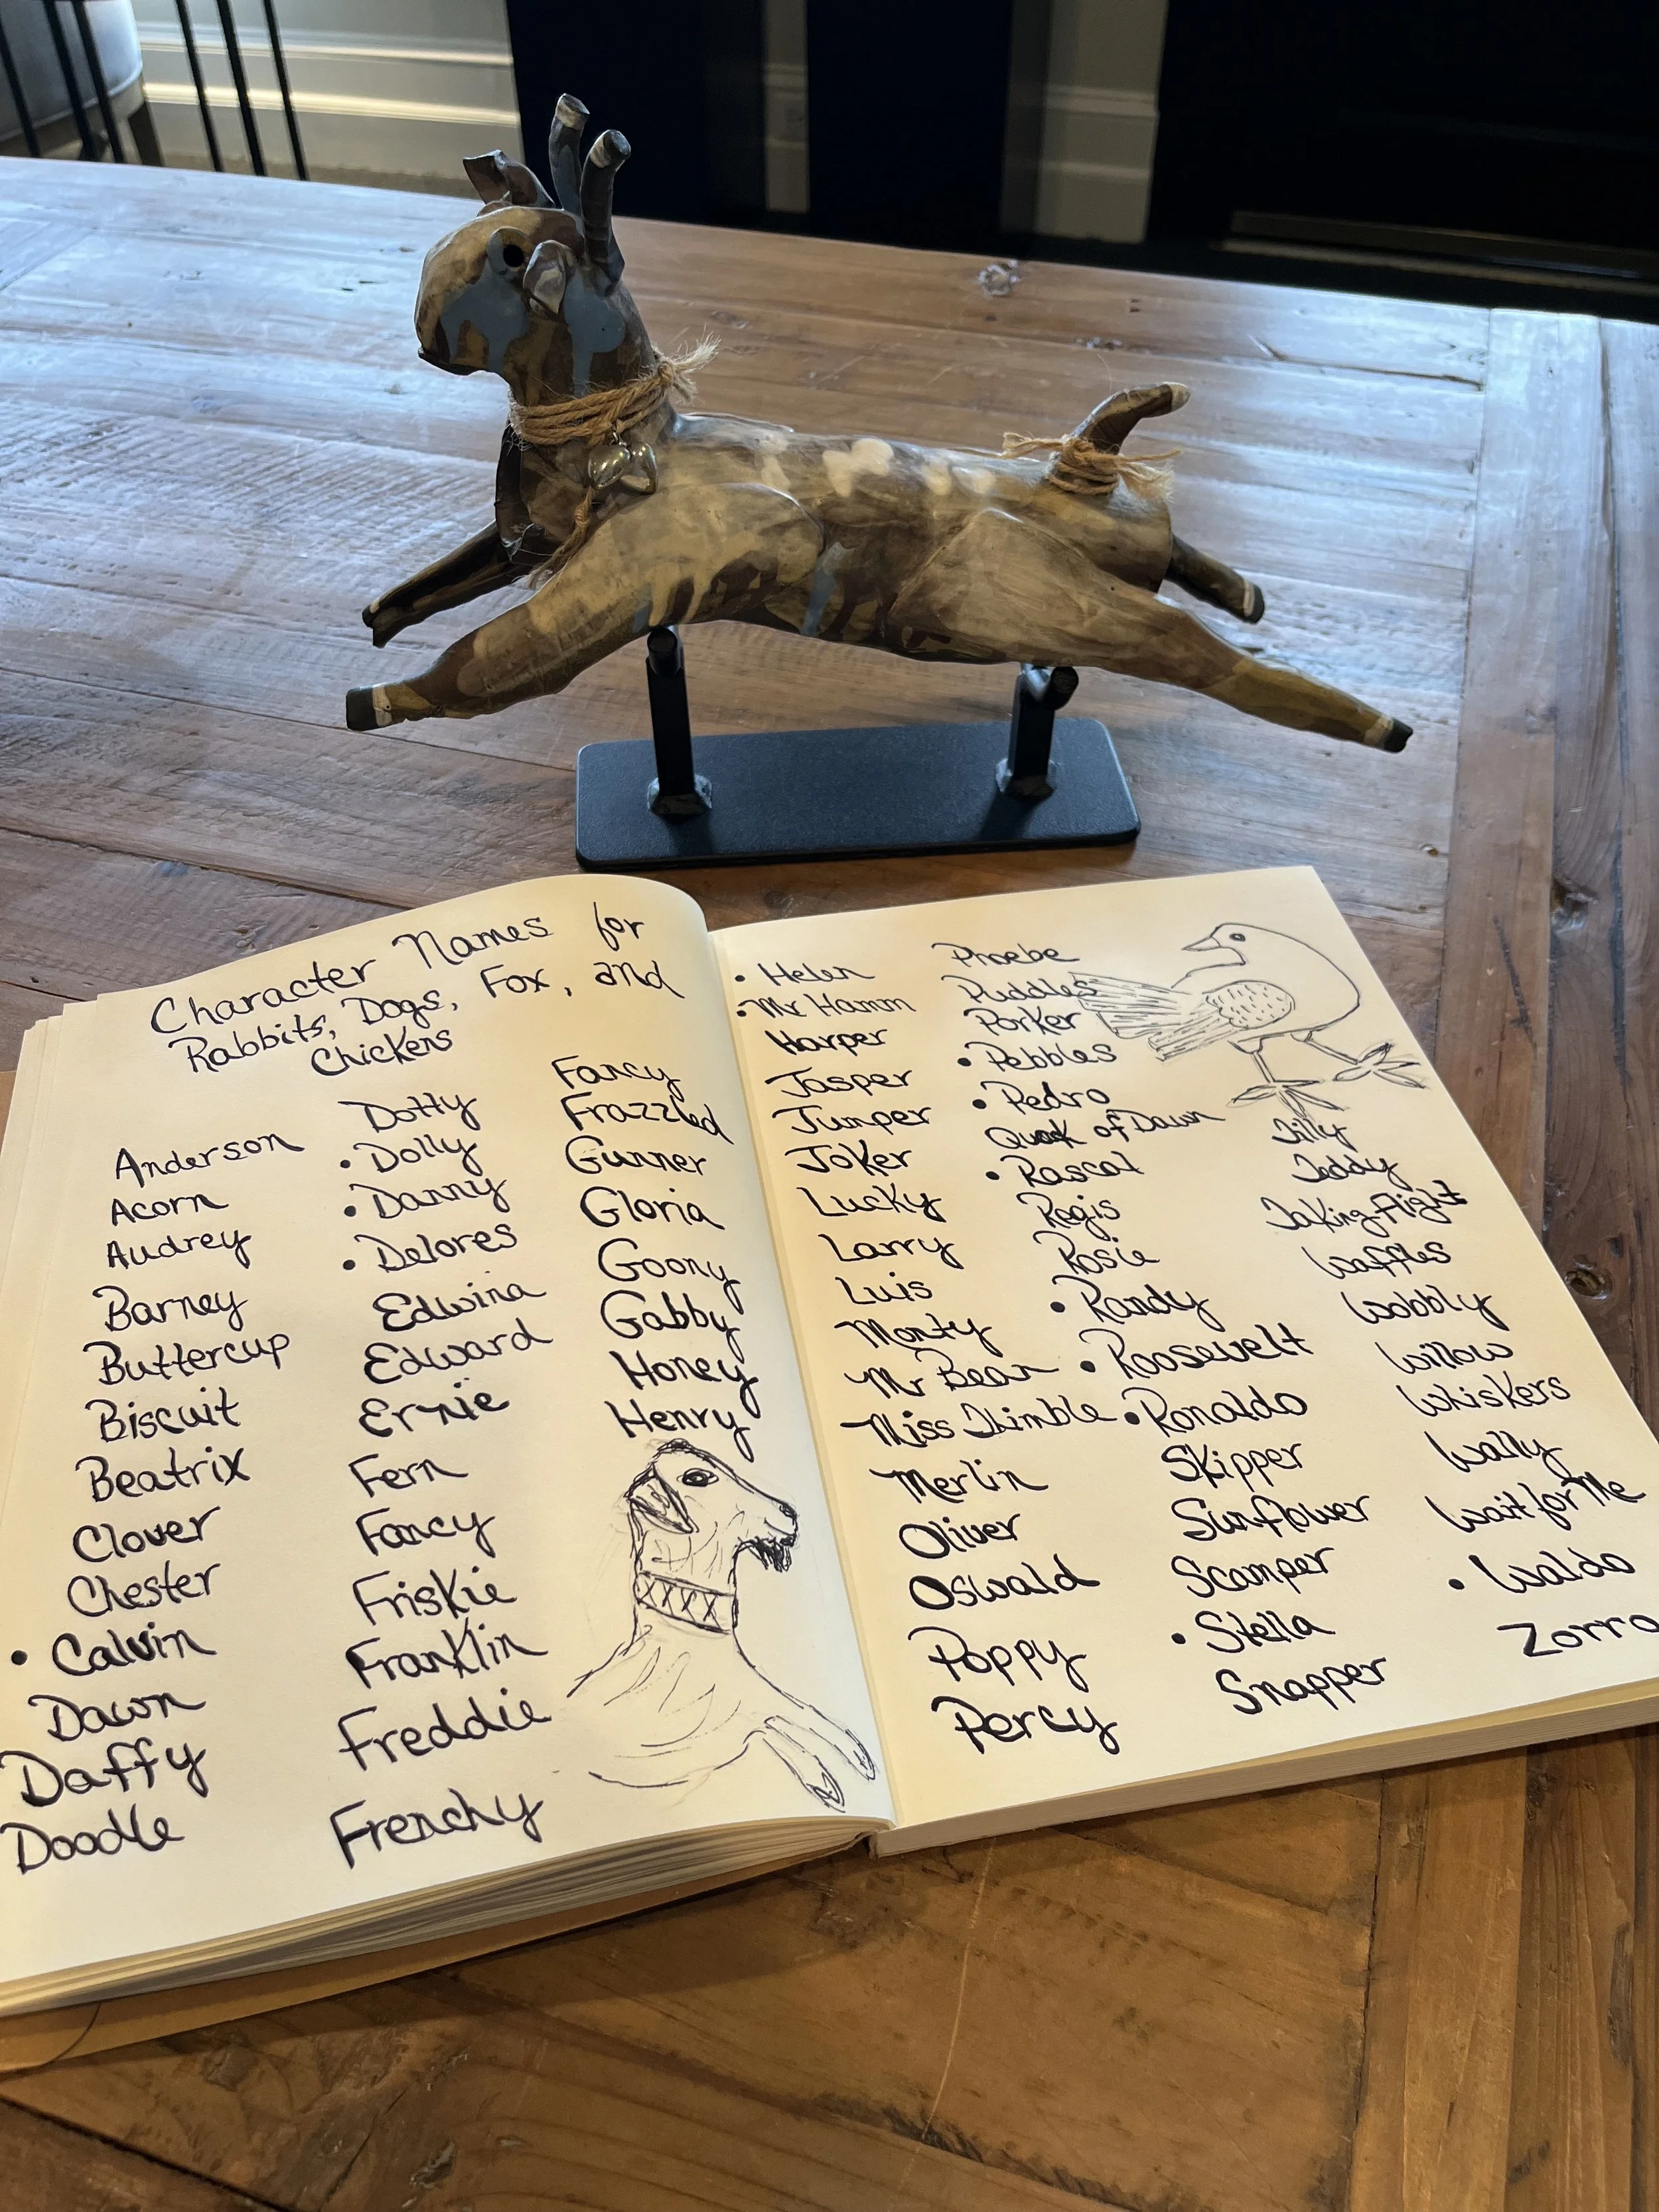 Character Names for
Rabbits, Dogs, Fox, and
Chickens
Anderson
Acorn
Audrey
Barney
Buttercup
Biscuit
Beatrix
Clover
Chester
• Calvin
Dawn
Daffy
Doodle
Dotty
• Dolly
• Danny
• Delores
Edwina
Edward
Ernie
Fern
Fancy
Friskie
Franklin
Freddie
Frenchy
Fancy
Frazzled
Gunner
Gloria
Goony
Gabby
Honey
Henry
• Helen
• Mr Hamm
Harper
Jasper
Jumper
Joker
Lucky
Larry
Luis
Monty
Mr Bean
Miss Thimble
Merlin
Oliver
Oswald
Poppy
Percy
Phoebe
Puddles
Porker
• Pebbles
• Pedro
Quak of Dawn
• Rascal
Regis
Rosie
• Randy
• Roosevelt
• Ronaldo
Skipper
Sunflower
Scamper
• Stella
Snapper
Tilly
Teddy
Taking Flight
Waffles
Wobbly
Willow
Whiskers
Wally
Wait for Me
• Waldo
Zorro